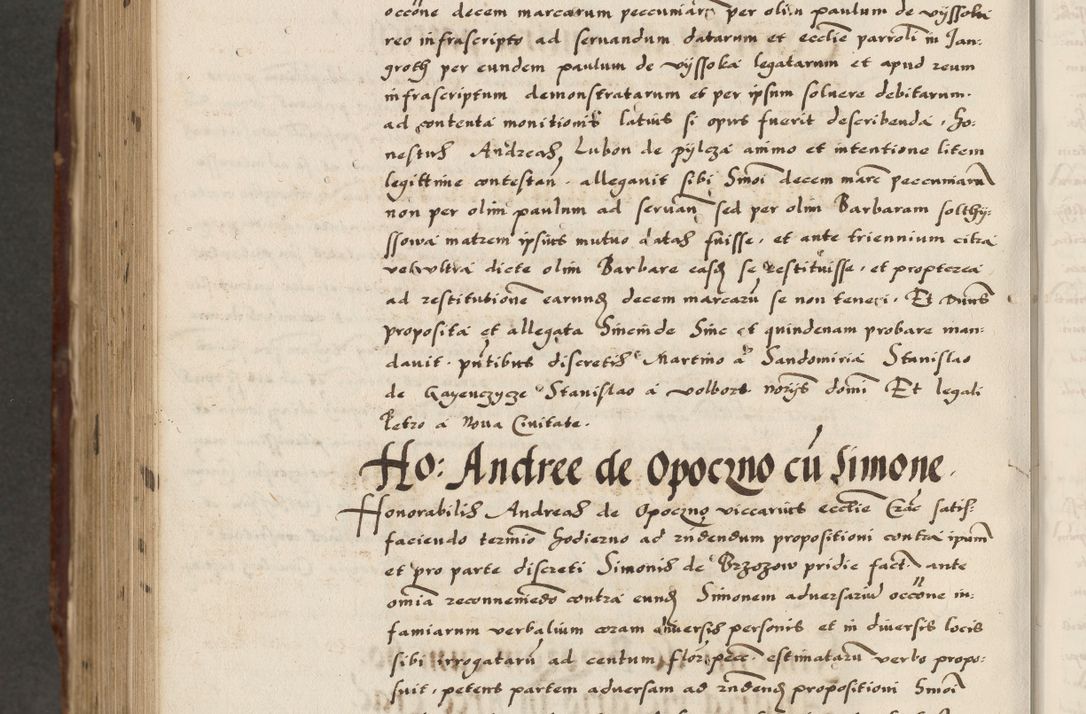 occōne decem marcarum peccuniarū per olim paulum de vÿssoka
reo infrascripto ad seruandum datarum et ecclīe parroli in Jan:
groth per eundem paulum de vÿssoka legatarum et apud reum
infrascriptum demonstratarum et per ipsum soluere debitarum.
ad contenta monitionis latius si opus fuerit describenda. Ho:
nestus Andreas Lubon de pÿlcza animo et intentione litem
legittime contestan. allegauit sibi Simoi decem marc peccuniarū
non per olim paulum ad seruan sed per olim Barbaram solthÿ:
ssowa matrem ipsius mutuo datas fuisse. et ante triennium citra
vel vltra dicte olim Barbare easd se restituisse. et propterea
ad restitutionē earund decem marcarū se non teneri. Et Duns
proposita et allegata hincinde hinc et quindenam probare man:
dauit. pntibus discretis Martino a Sandomiria Stanislao
de Gayenczycze Stanislao a volbors noris domi Et legali
Petro a Noua Ciuitate.
Ho: Andree de Opoczno cū Simone.
Honorabilis Andreas de Opoczno viccarius ecclīe Crac satis:
faciendo termino hodierno ad rndendum propositioni contra ipum
et pro parte discreti Simonis de Brzozow pridie fact ante
omia reconueniedo contra eund Simonem aduersariū occōne in:
famiarum verbalium coram diuersis personis et in diuersis locis
sibi irrogatarū ad centum flor pecc. estimatarū verbo propo:
suit. petens partem aduersam ad rndend propositioni Simoi